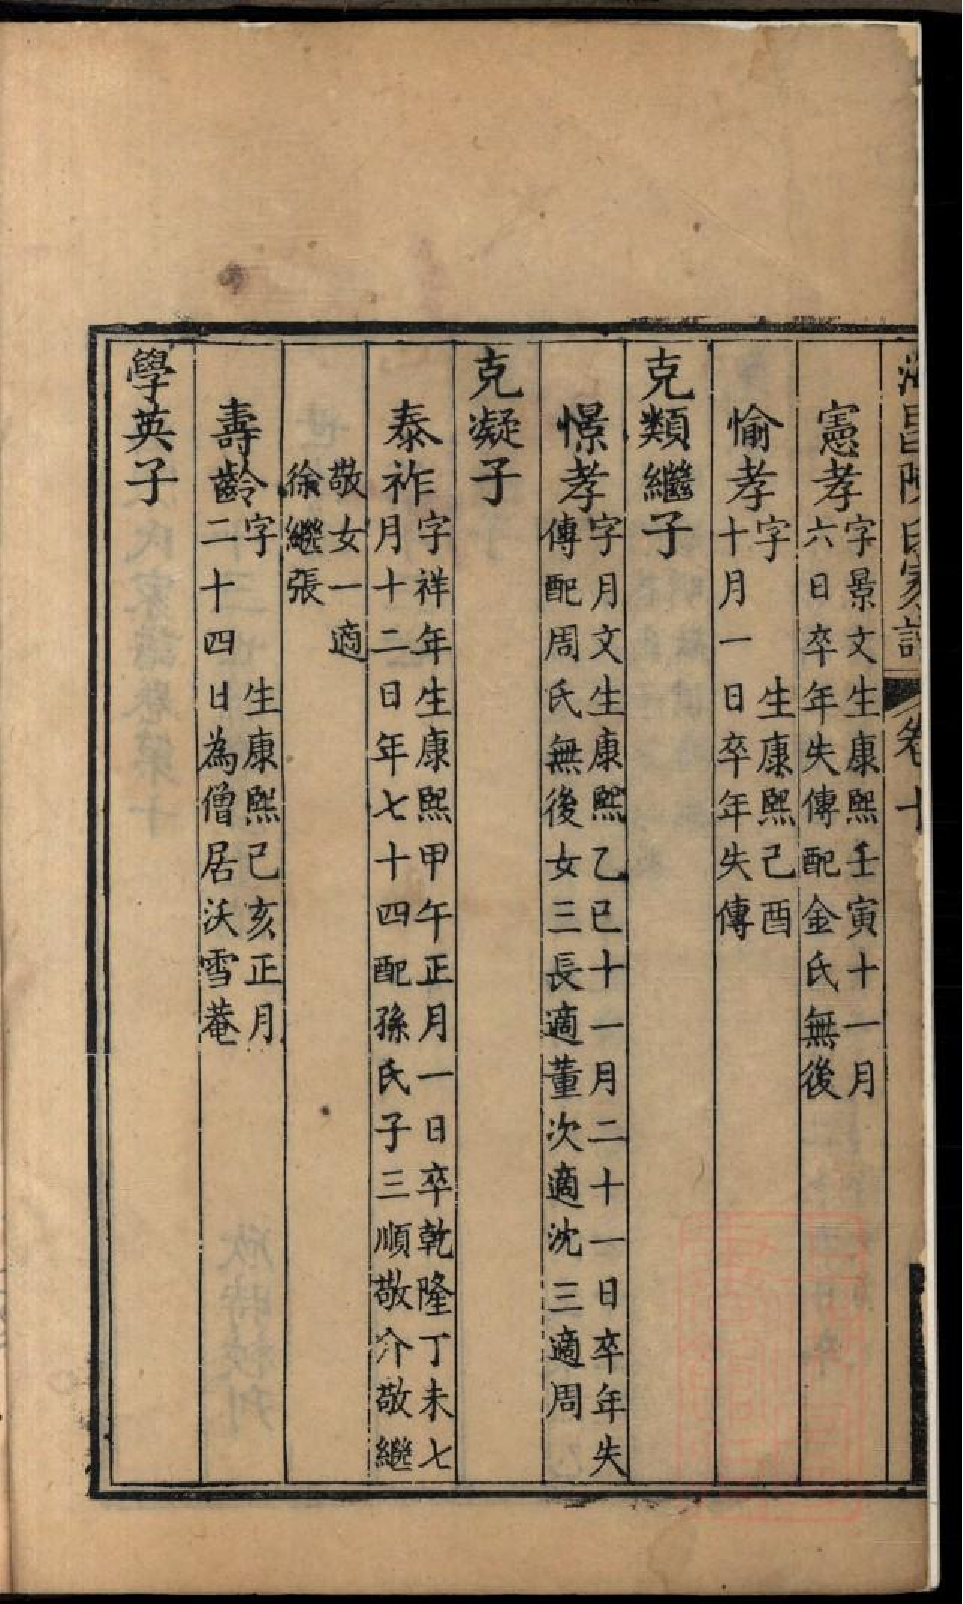 海昌陳氏家譜 卷十
憲孝字景文生康熙壬寅十一月
六日卒年失傳配金氏無後
愉孝字 生康熙己酉
十月一日卒年失傳
克類繼子
憬孝字月文生康熙乙巳十一月二十一日卒年失
傳配周氏無後女三長適董次適沈三適周
克凝子
泰祚字祥年生康熙甲午正月一日卒乾隆丁未七
月十二日年七十四配孫氏子三順敬介敬繼
敬女一適
徐繼張
壽齡字 生康熙己亥正月
二十四日為僧居沃雪菴
學英子